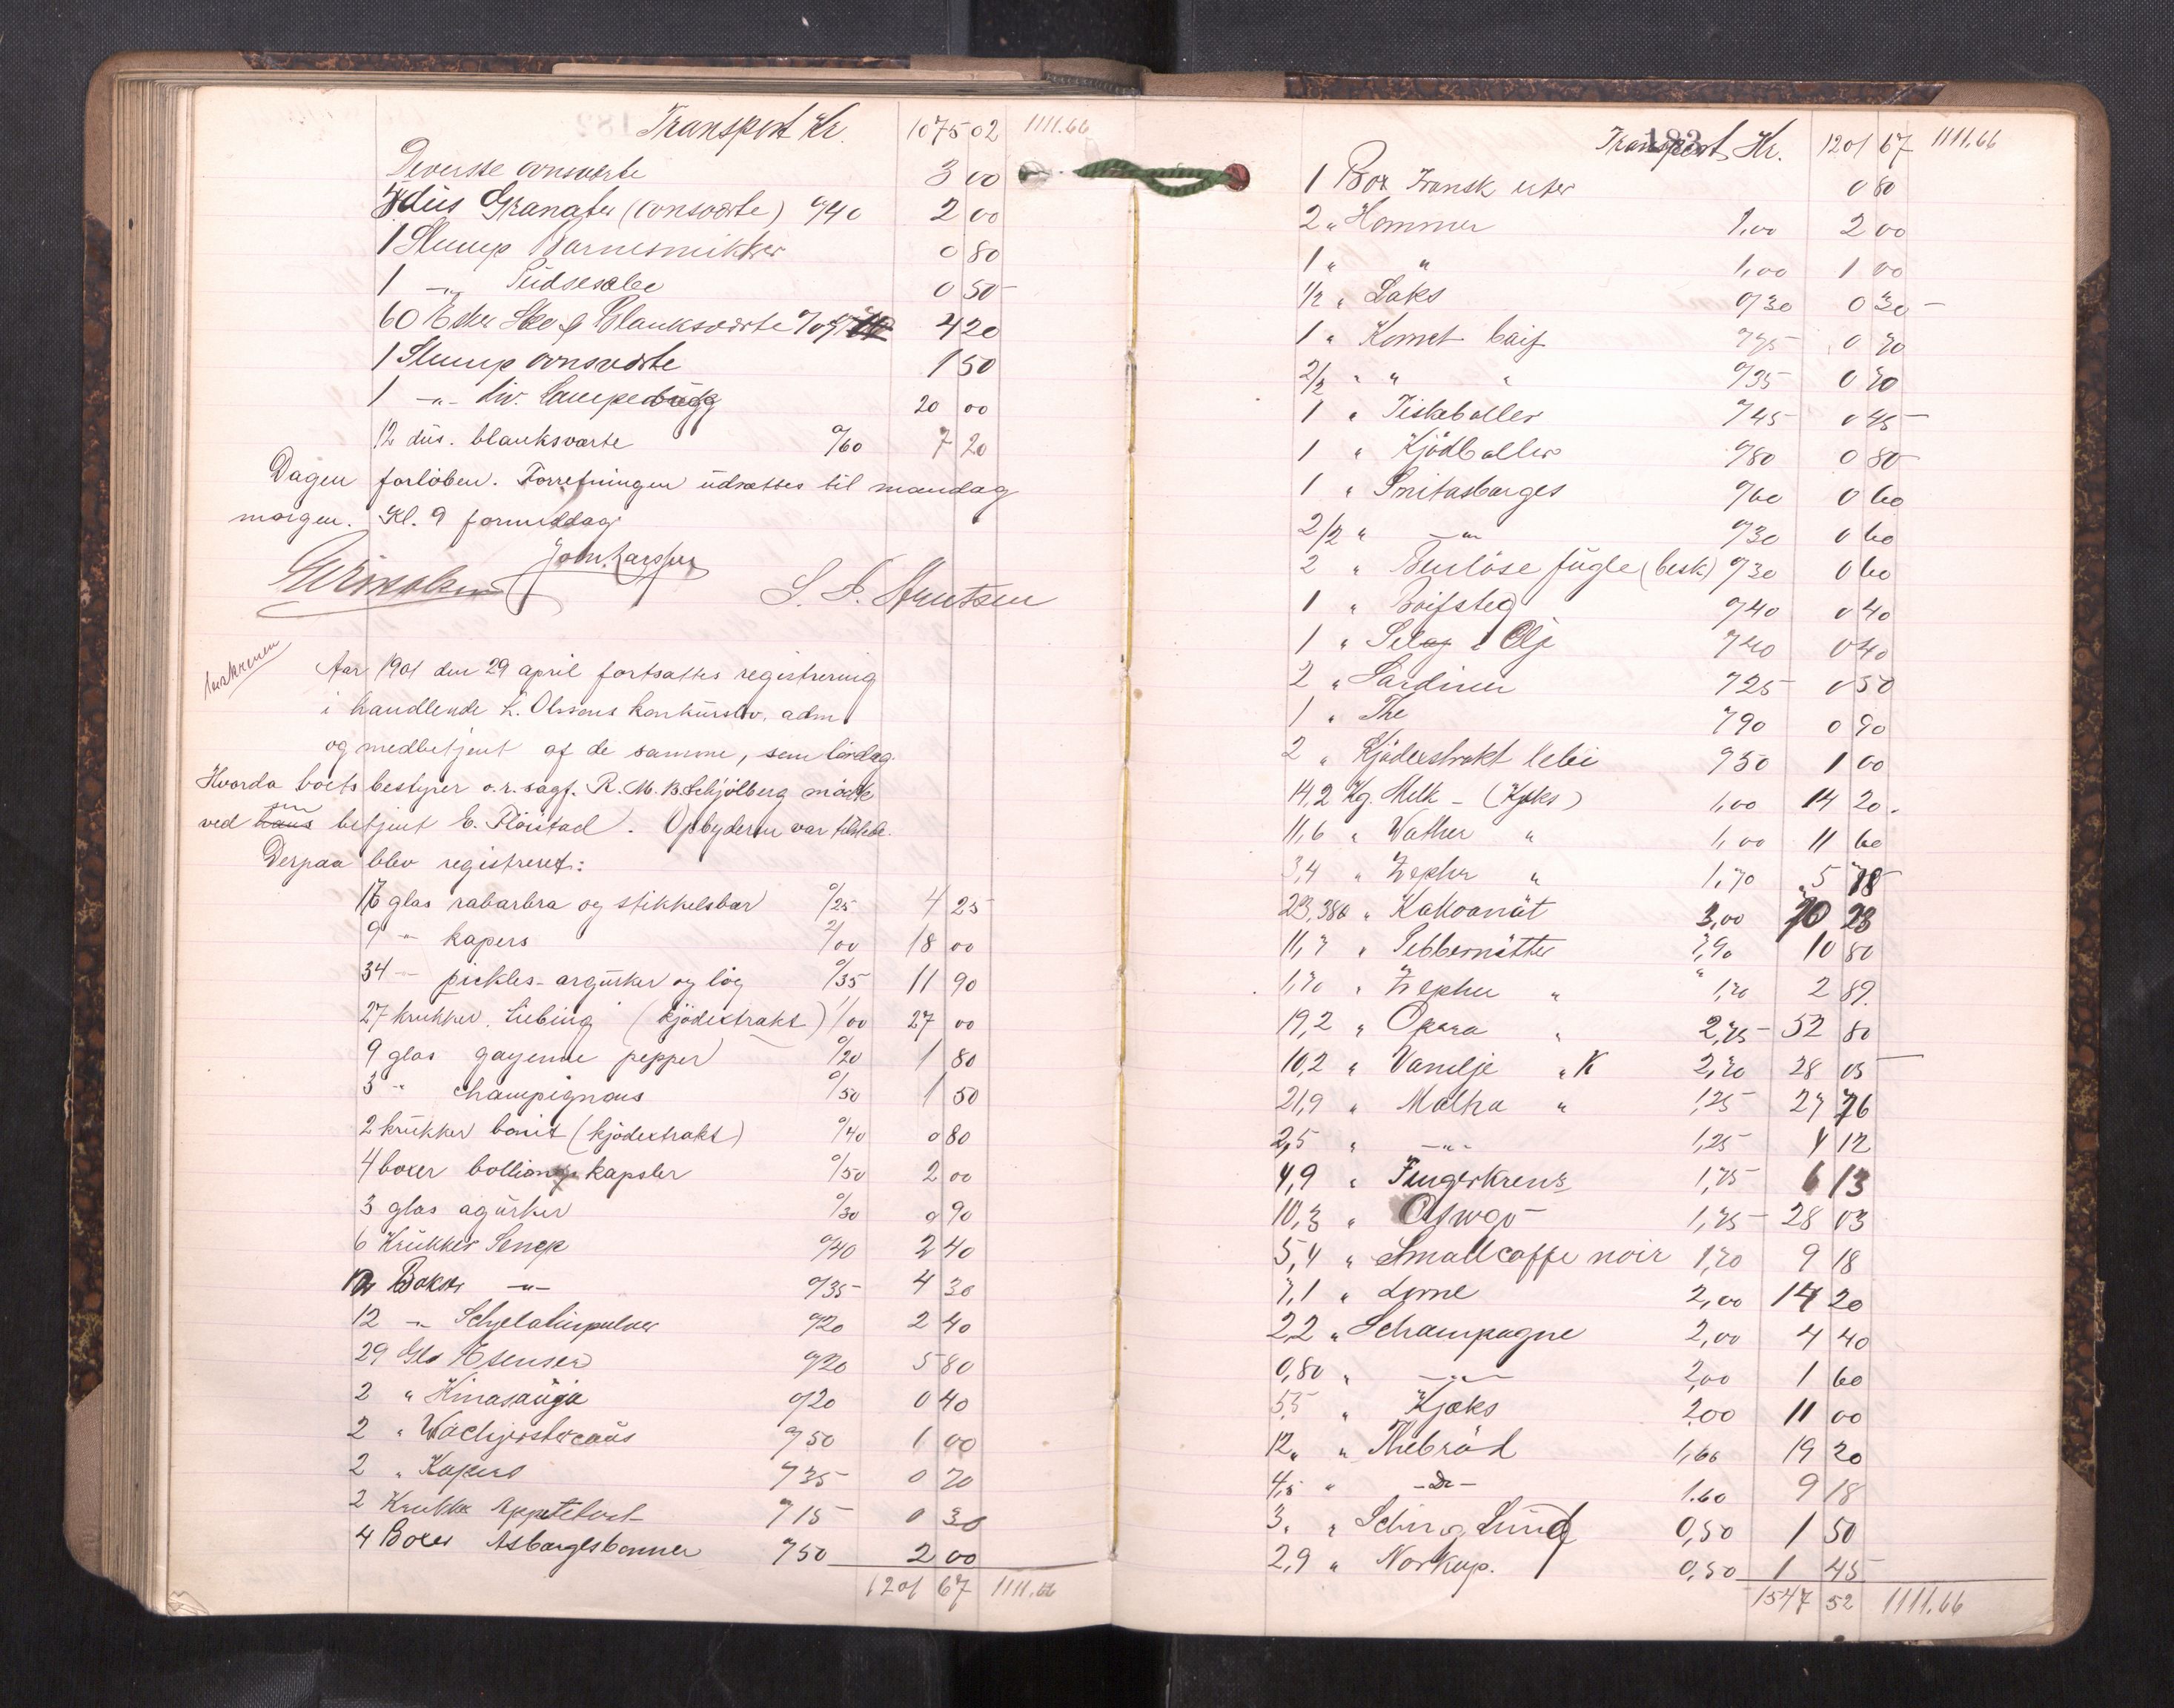 Transport Kr. 1075 02 1111.66
Deversse ovnsværte 3 00
5 dus Granater (ovnsværte) 0/40 2 00
1 Slump Barnesmikker 0 80
1 -"- Pudsesalve 0 50
60 Esker Sko & Blanksværte 4 20
1 Slump ovnsværte 1 50
1 -"- div. Lampe 20 00
12 dus. blanksværte 0/60 7 20
Dagen forløben. Forretningen udsættes til mandag
morgen. Kl. 9 formiddag.
Aar 1901 den 29 april fortsattes registrering
i handlende L. Olssons konkursbo, adm.
og medbetjent af de samme, som lørdag.
Hvorda boets bestyrer o.r. sagf. R. M. B. Schjølberg mødte
ved hans sin betjent E. Flöistad. Opbyderen var tilstede.
Derpaa blev registreret:
17 glas rabarbra og stikkelsbær 0/25 4 25
9 -"- kapers 2/00 18 00
34 -"- pickles-argurker og løg 0/35 11 90
27 krukker Liebing (kjödextrakt) 1/00 27 00
9 glas gayenne pepper 0/20 1 80
3 -"- champignons 0/50 1 50
2 krukker bovit (kjödextrakt) 0/40 0 80
4 boxer bollions kapsler 0/50 2 00
3 glas agurker 0/30 0 90
6 Krukker Senep 0/40 2 40
12 Bokser -"- 0/35 4 30
12 -"- Schjelatinpulver 0/20 2 40
29 Gls Esenser 0/20 5 80
2 " Kinasauja 0/20 0 40
2 " 0/50 1 00
2 " Kapers 0/35 0 70
2 Krukke Appetitost 0/15 0 30
4 Boxer Asbargesbønner 0/50 2 00
1201 67 1111.66
183
Transport Kr. 1201 67 1111.66
1 Box Fransk erter 0 80
2 " Hommer 1,00 2 00
1 " " 1,00 1 00
1/2 " Laks 0/30 0 30
1 " Kornet baif 0/75 0 70
2/2 " " " 0/35 0 70
1 " Fiskeboller 0/45 0 45
1 " Kjödboller 0/80 0 80
1 " Snitasbarges 0/60 0 60
2/2 " -"- 0/30 0 60
2 " Benløse fugle (besk) 0/30 0 60
1 " Baifsteg 0/40 0 40
1 " i Olje 0/40 0 40
2 " Sardiner 0/25 0 50
1 " The 0/90 0 90
2 " Kjödexstrakt Lebi 0/50 1 00
14,2 Kg. Melk - (Kjeks) 1,00 14 20
11,6 " Wather " 1,00 11 60
3,4 " Zephr " 1,70 5 78
23,380 " Kakoanüt 3,00 70 23
11,7 " Pebbernötter 0,90 10 80
1,70 " Zephur " 1,70 2 89
19,2 " Opera " 2,75 52 80
10,2 " Vanilje " K 2,70 28 05
21,9 " Maltha " 1,25 27 76
2,5 " -"- 1,25 4 12
4,9 " Fingerkrens 1,75 6 13
10,3 " Oswgo 1,75 28 03
5,4 " Smallcaffe noir 1,70 9 18
7,1 " Lorne 2,00 14 20
2,2 " Schampagne 2,00 4 40
0,80 " -"- 2,00 1 60
5,5 " Kjæks 2,00 11 00
12, " Thebröd 1,60 19 20
4,5 " -Do- 1.60 9 18
3. " 0,50 1 50
2,9 " Norkap. 0,50 1 45
1547 52 1111.66